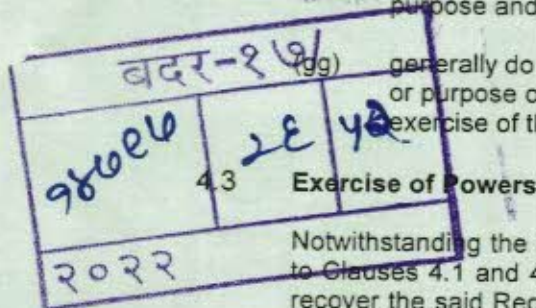 purpose and
बदर-१७/
(gg) generally do
or purpose o
exercise of th
१४७९७ २६
4.3 Exercise of Powers
Notwithstanding the
to Clauses 4.1 and 4
२०२२
recover the said Rec